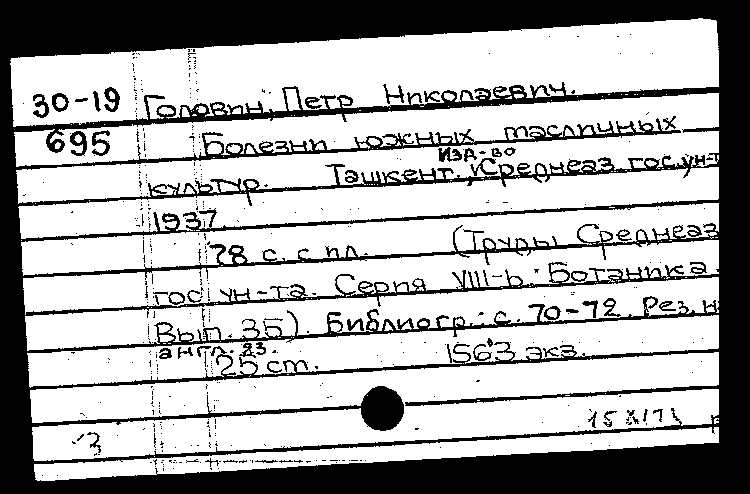 30-19 Головин, Петр Николаевич.
695 Болезни южных масличных
изд-во
культур. Ташкент, Среднеаз. гос. ун-т
1937.
78 с. с ил. (Труды Среднеаз
гос. ун-та. Серия VIII-b. Ботаника.
Вып. 35). Библиогр.: с. 70-72. Рез. н
англ. яз.
25 см. 1563 экз.